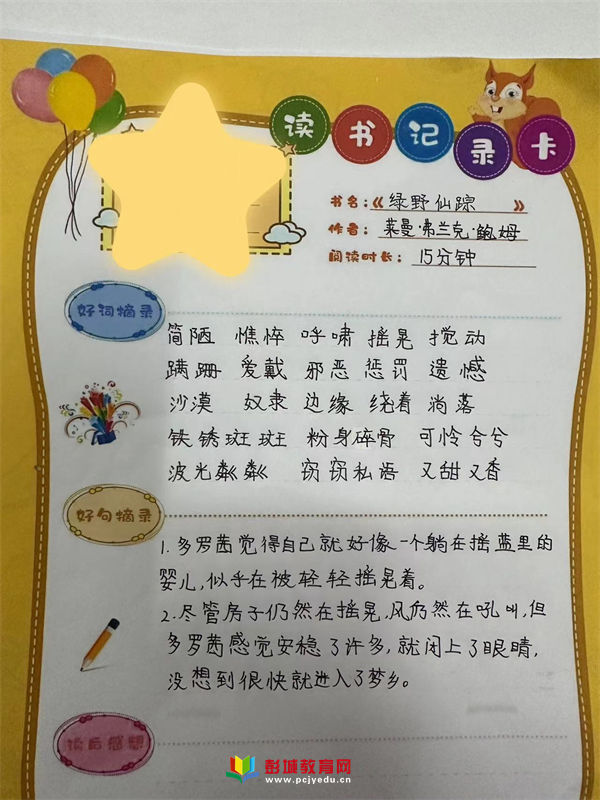 读书记录卡
书名：《绿野仙踪》
作者：莱曼·弗兰克·鲍姆
阅读时长：15分钟
好词摘录
简陋 憔悴 呼啸 摇晃 搅动
蹒跚 爱戴 邪恶 惩罚 遗憾
沙漠 奴隶 边缘 绕着 淌落
铁锈斑斑 粉身碎骨 可怜兮兮
波光粼粼 窃窃私语 又甜又香
好句摘录
1. 多罗茜觉得自己就好像一个躺在摇蓝里的
婴儿，似乎在被轻轻摇晃着。
2. 尽管房子仍然在摇晃，风仍然在吼叫，但
多罗茜感觉安稳了许多，就闭上了眼睛，
没想到很快就进入了梦乡。
读后感想
彭城教育网
www.pcjyedu.cn